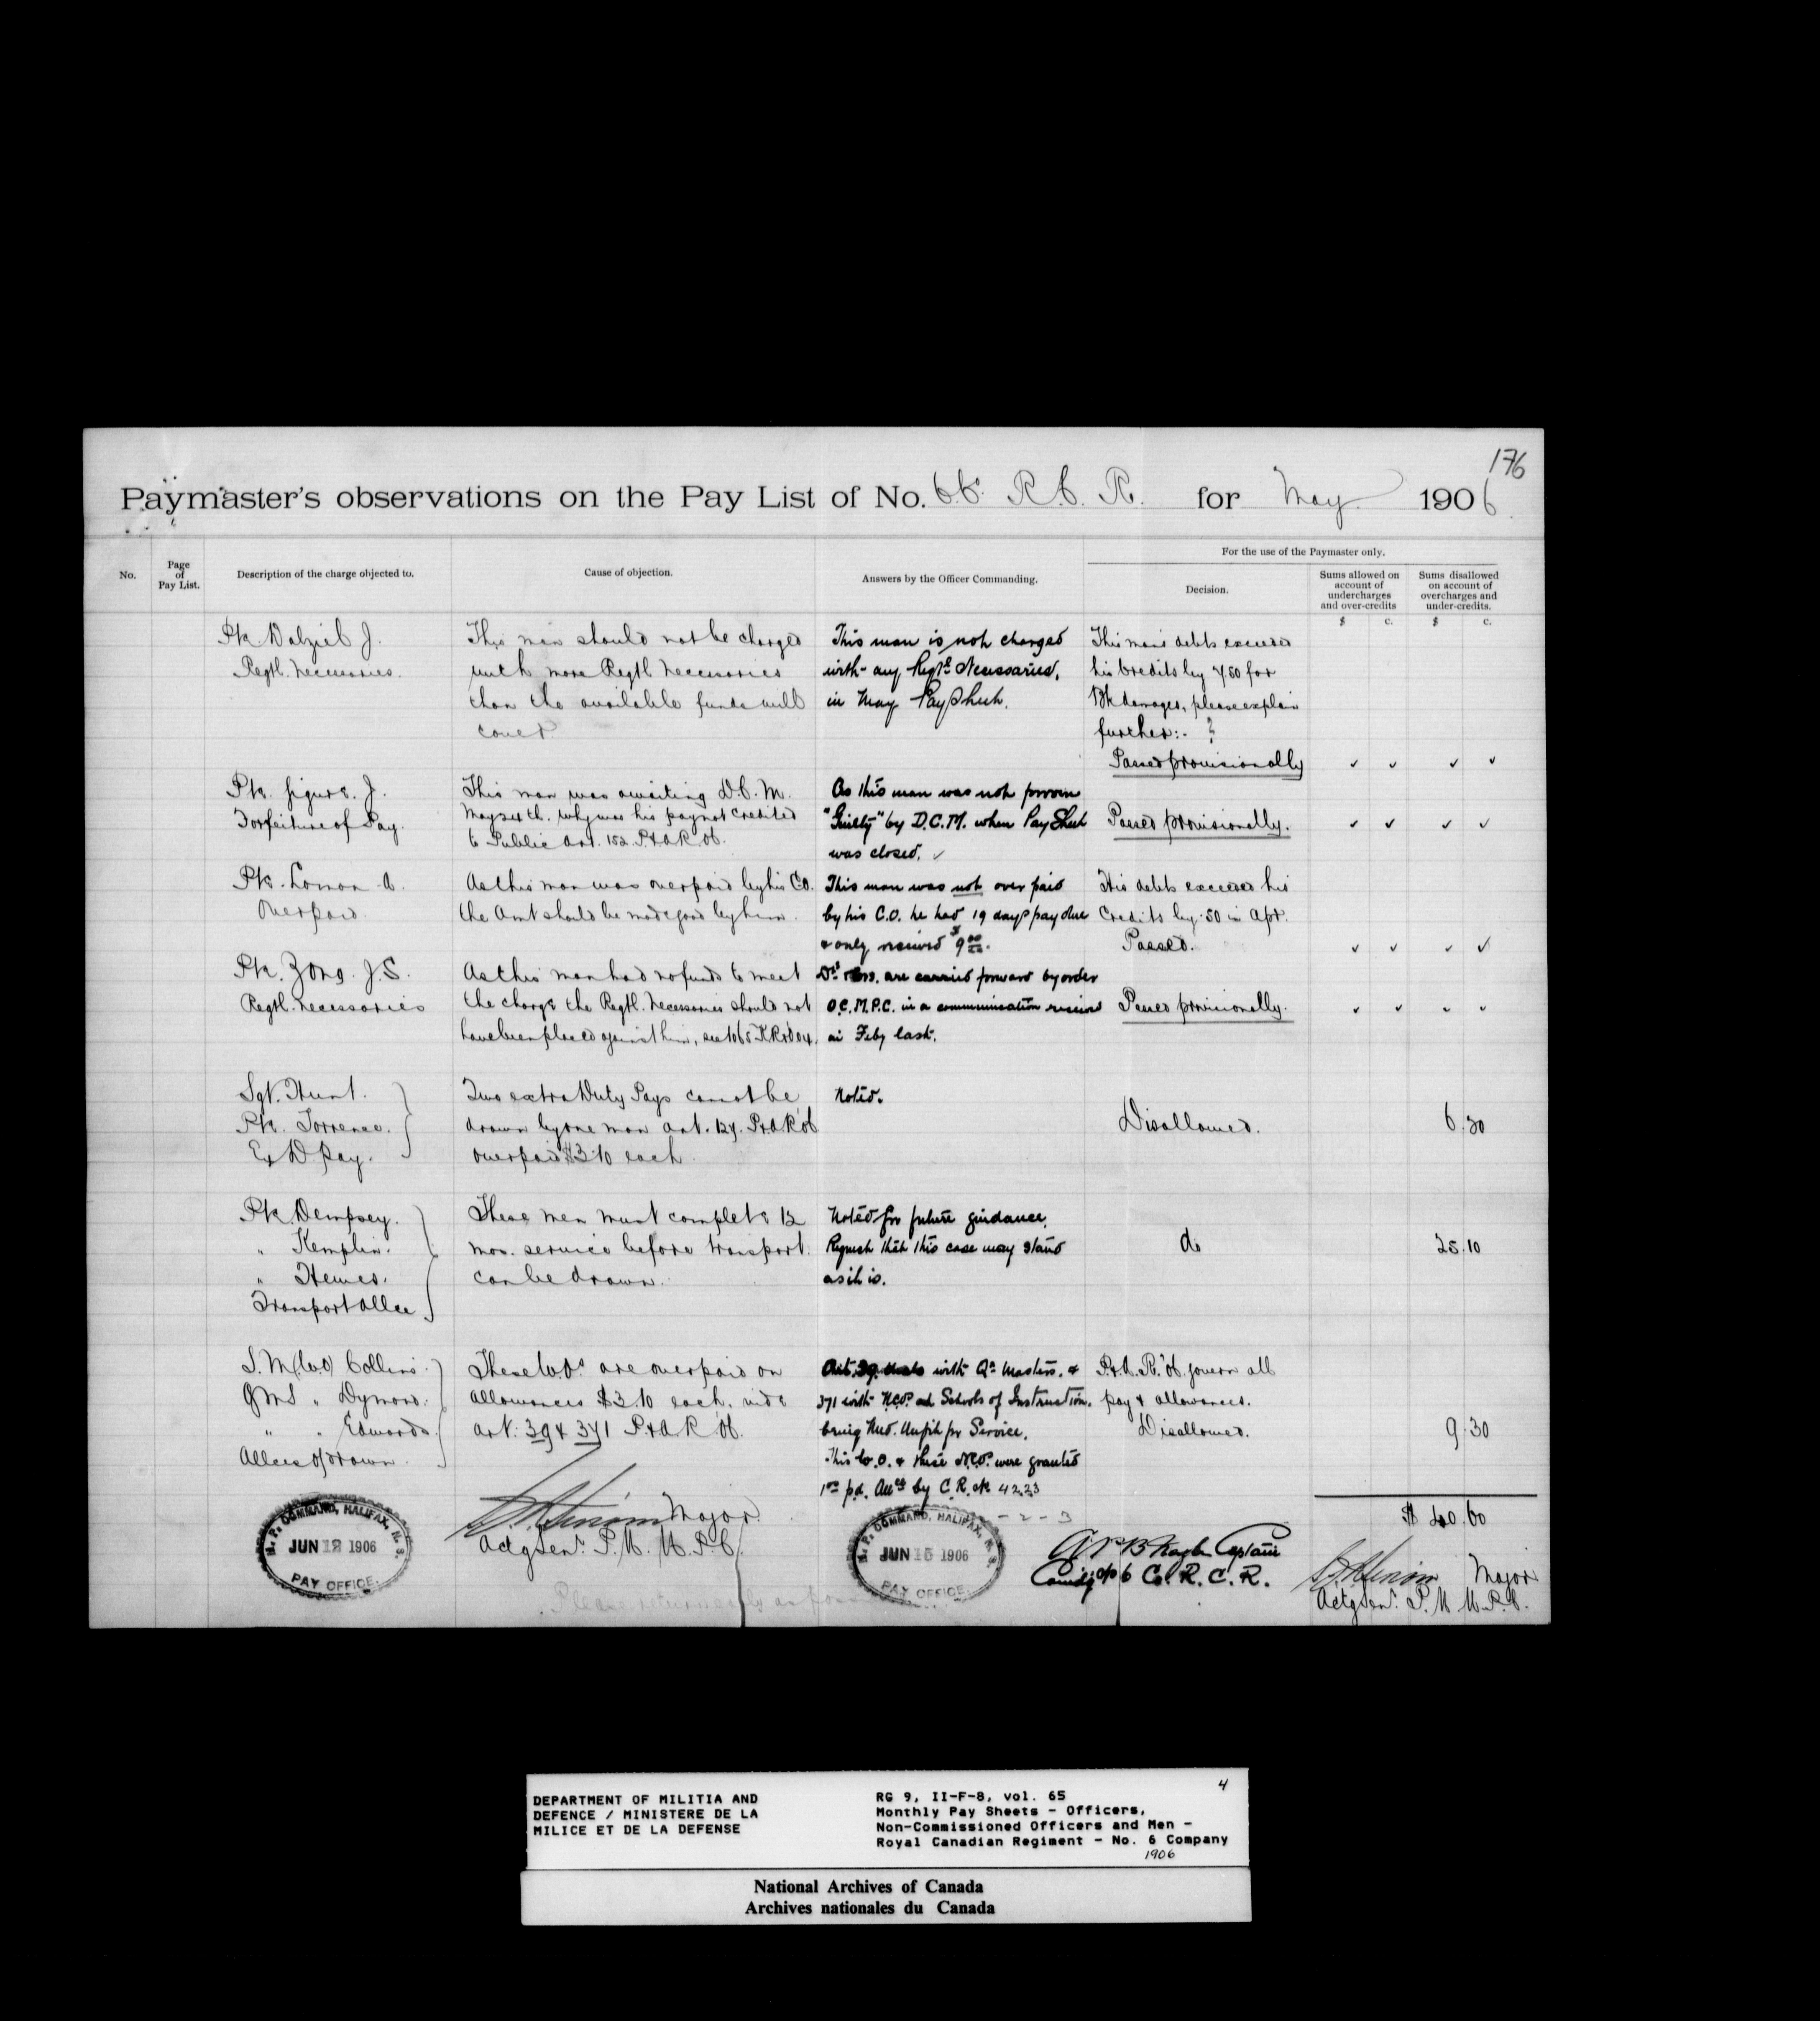 176
Paymaster's observations on the Pay List of No. 6 Co. R. C. R. for May 1906
No.
Page of Pay List.
Description of the charge objected to.
Cause of objection.
Answers by the Officer Commanding.
For the use of the Paymaster only.
Decision.
Sums allowed on account of undercharges and over-credits
Sums disallowed on account of overcharges and under-credits.
$ c. $ c.
Pte Dalziel J.
Regtl. necessaries.
This man should not be charged
with more Regtl necessaries
than the available funds will
cover
This man is not charged
with any Regtl Necessaries,
in May Pay Sheet.
This man's debts exceeded
his credits by 7.50 for
Bk damages, please explain
further:- ?
Passed provisionally
Pte. J.
Forfeiture of Pay.
This man was awaiting D.C.M.
May 24th. why was his pay not credited
to Public Art. 152 P&A R 06.
As this man was not proven
"Guilty" by D.C.M. when Pay Sheet
was closed. ✓
Passed provisionally.
Pte.
Overpaid.
As this man was overpaid by his CO.
the Amt should be made good by him.
This man was not over paid
by his C.O. he had 19 days pay due
& only received $9.00.
His debts exceeded his
Credits by .50 in Apr.
Passed.
Pte. J.S.
Regtl. necessaries
As this man had no funds to meet
the charge the Regtl. necessaries should not
have been placed against him, see 1065 KR&O 04.
are carried forward by order
O.C.M.P.C. in a communication received
in Feby last.
Passed provisionally.
Sgt. Hunt.
Pte. Torrence.
Ex D Pay.
Two extra Duty Pays cannot be
drawn by one man art. 127. P&A R '06
overpaid $3.10 each.
Noted.
Disallowed.
6.20
Pte Dempsey.
" Kemplin.
" Hewes.
Transport Allce
These men must complete 12
mos. service before transport.
can be drawn.
Noted for future guidance.
Request that this case may stand
as it is.
do
25.10
S.M. (W.O) Collins.
QMS " Dymond.
" " Edwards
Allces of drawn.
These W.Os are overpaid on
allowances $3.10 each, vide
art: 39 & 371 P&A R 06.
Art. 39 deals with Qr Masters, &
371 with N.C.O's at Schools of Instruction.
This W.O. & these N.C.O's were granted
by C.R. 4223
P.&A.R. '06 govern all
pay & allowances.
Disallowed.
9.30
$ 40.60
M. P. COMMAND, HALIFAX, N. S.
JUN 12 1906
PAY OFFICE.
Major
Actg Senr. P.M. M.P.C.
M. P. COMMAND, HALIFAX, N. S.
JUN 15 1906
PAY OFFICE.
-2-3
Captain
Comdg No 6 Co. R. C. R.
Major
Actg Senr. P.M M.P.C.
Please return early as
4
DEPARTMENT OF MILITIA AND
DEFENCE / MINISTERE DE LA
MILICE ET DE LA DEFENSE
RG 9, II-F-8, vol. 65
Monthly Pay Sheets - Officers,
Non-Commissioned Officers and Men -
Royal Canadian Regiment - No. 6 Company
1906
National Archives of Canada
Archives nationales du Canada